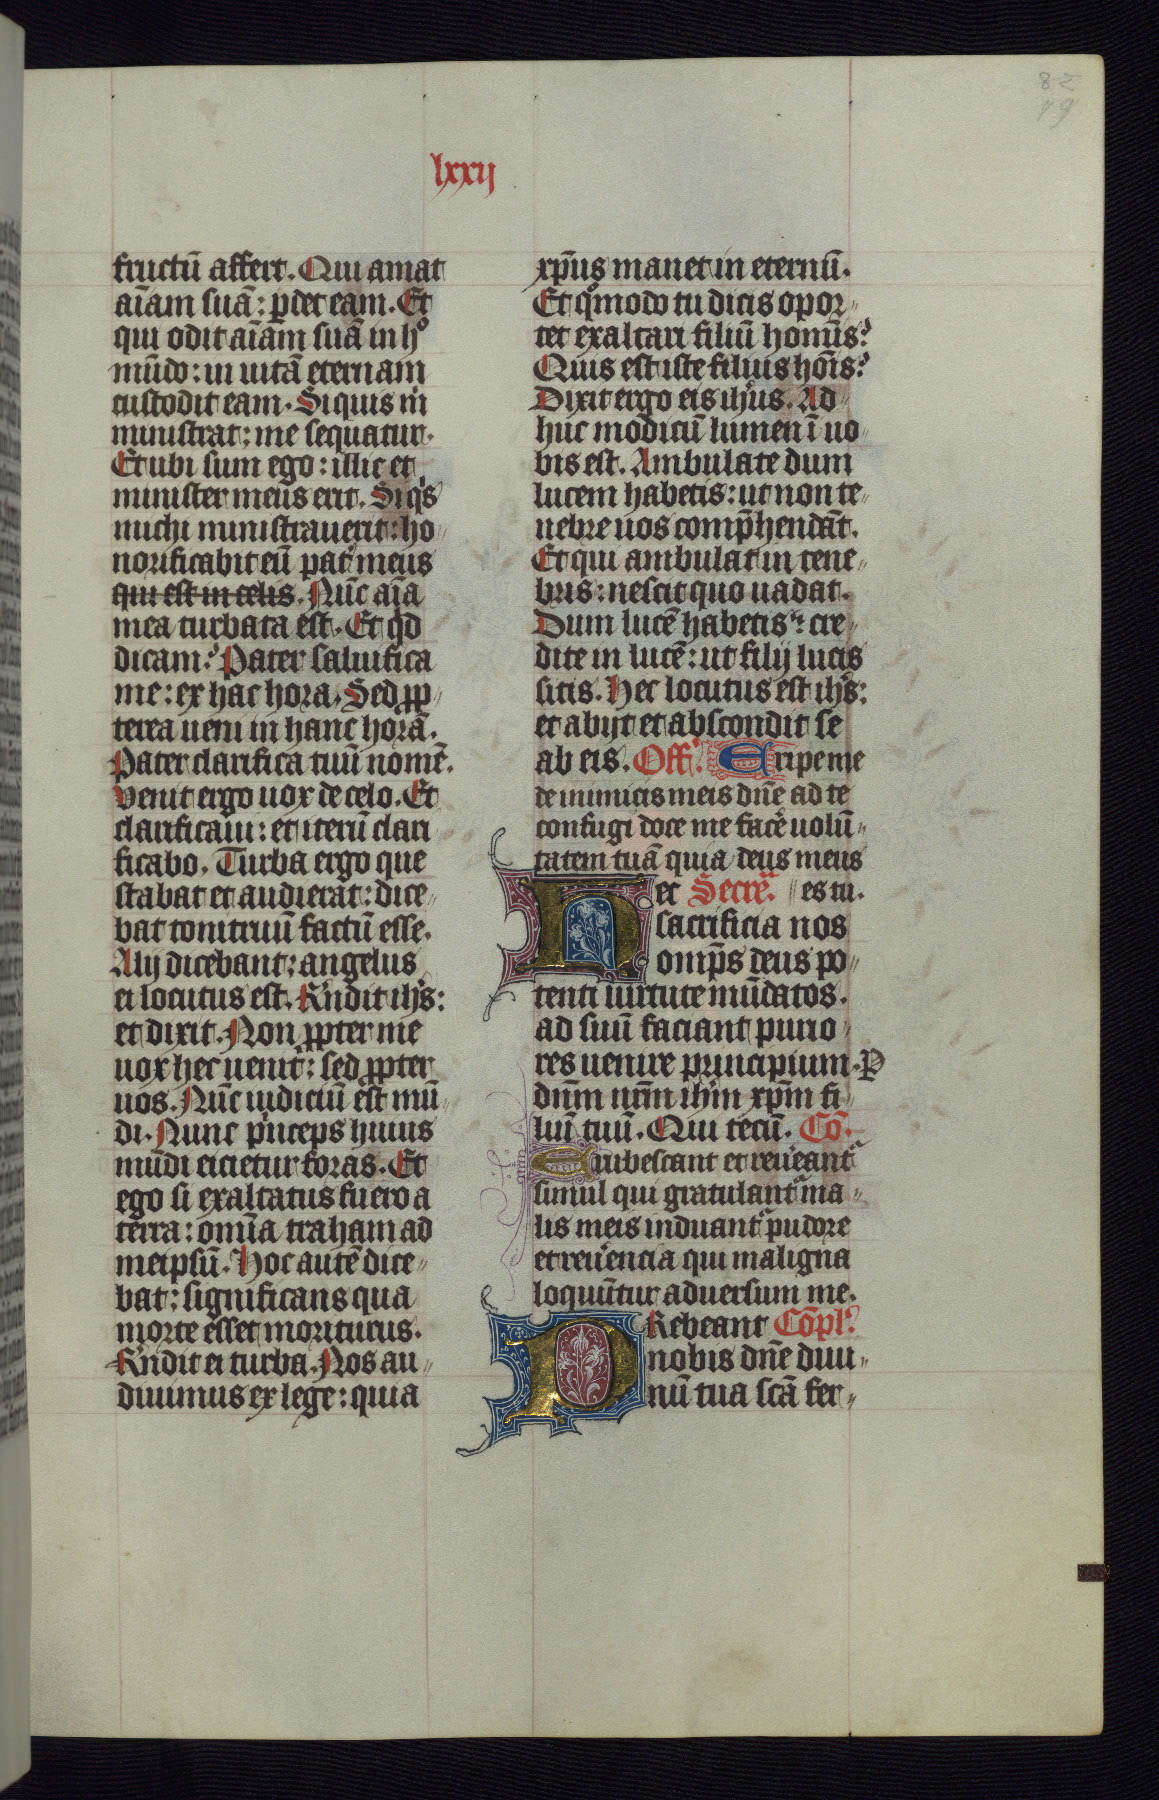 82
79
lxxij
fructū affert. Qui amat
aīam suā: ꝑdet eam. Et
qui odit aīam suā in hͦ
mūdo: in uitā eternam
custodit eam. Si quis m̄
ministrat: me sequatur.
Et ubi sum ego: illic et
minister meus erit. Si qͥs
michi ministrauerit: ho
norificabit eū pat̄ meus
qui est in celis. Nūc aīa
mea turbata est. Et qͥd
dicam? Pater saluifica
me: ex hac hora. Sed ꝓp
terea ueni in hanc horā.
Pater clarifica tuū nomē.
Venit ergo uox de celo. Et
clarificaui: et iterū clari
ficabo. Turba ergo que
stabat et audierāt: dice
bat tonitruū factū esse.
Alij dicebant: angelus
ei locutus est. Rn̄dit ihs̄:
et dixit. Non ꝓpter me
uox hec uenit: sed ꝓpter
uos. Nūc iudiciū est mū
di. Nunc pͥnceps huius
mūdi eicietur foras. Et
ego si exaltatus fuero a
terra: omīa traham ad
meipsū. Hoc autē dice
bat: significans qua
morte esset moriturus.
Rn̄dit ei turba. Nos au
diuimus ex lege: quia
xp̄us manet in eternū.
Et qͦmodo tu dicis opor
tet exaltari filiū homīs?
Quis est iste filius hoīs?
Dixit ergo eis ih̄us. Ad
huc modicū lumen ī uo
bis est. Ambulate dum
lucem habetis: ut non te
nebre uos comp̄hendāt.
Et qui ambulat in tene
bris: nescit quo uadat.
Dum lucē habetis: cre
dite in lucē: ut filij lucis
sitis. Hec locutus est ihs̄:
et abijt et abscondit se
ab eis. Off. Eripe me
de inimicis meis dn̄e ad te
confugi doce me facē uolū
tatem tuā quia deus meus
Hec Secre. es tu.
sacrificia nos
omp̄s deus po
tenti uirtute mūdatos.
ad suū faciant purio
res uenire principium. P
dn̄m nr̄m ih̄m xp̄m fi
liū tuū. Qui tecū. Cō.
Erubescant et reu̓eant᷑
simul qui gratulant᷑ ma
lis meis induant᷑ pudore
et reu̓encia qui maligna
loquūtur aduersum me.
PRebeant Cōpl.
nobis dn̄e diui
nū tua sc̄a fer